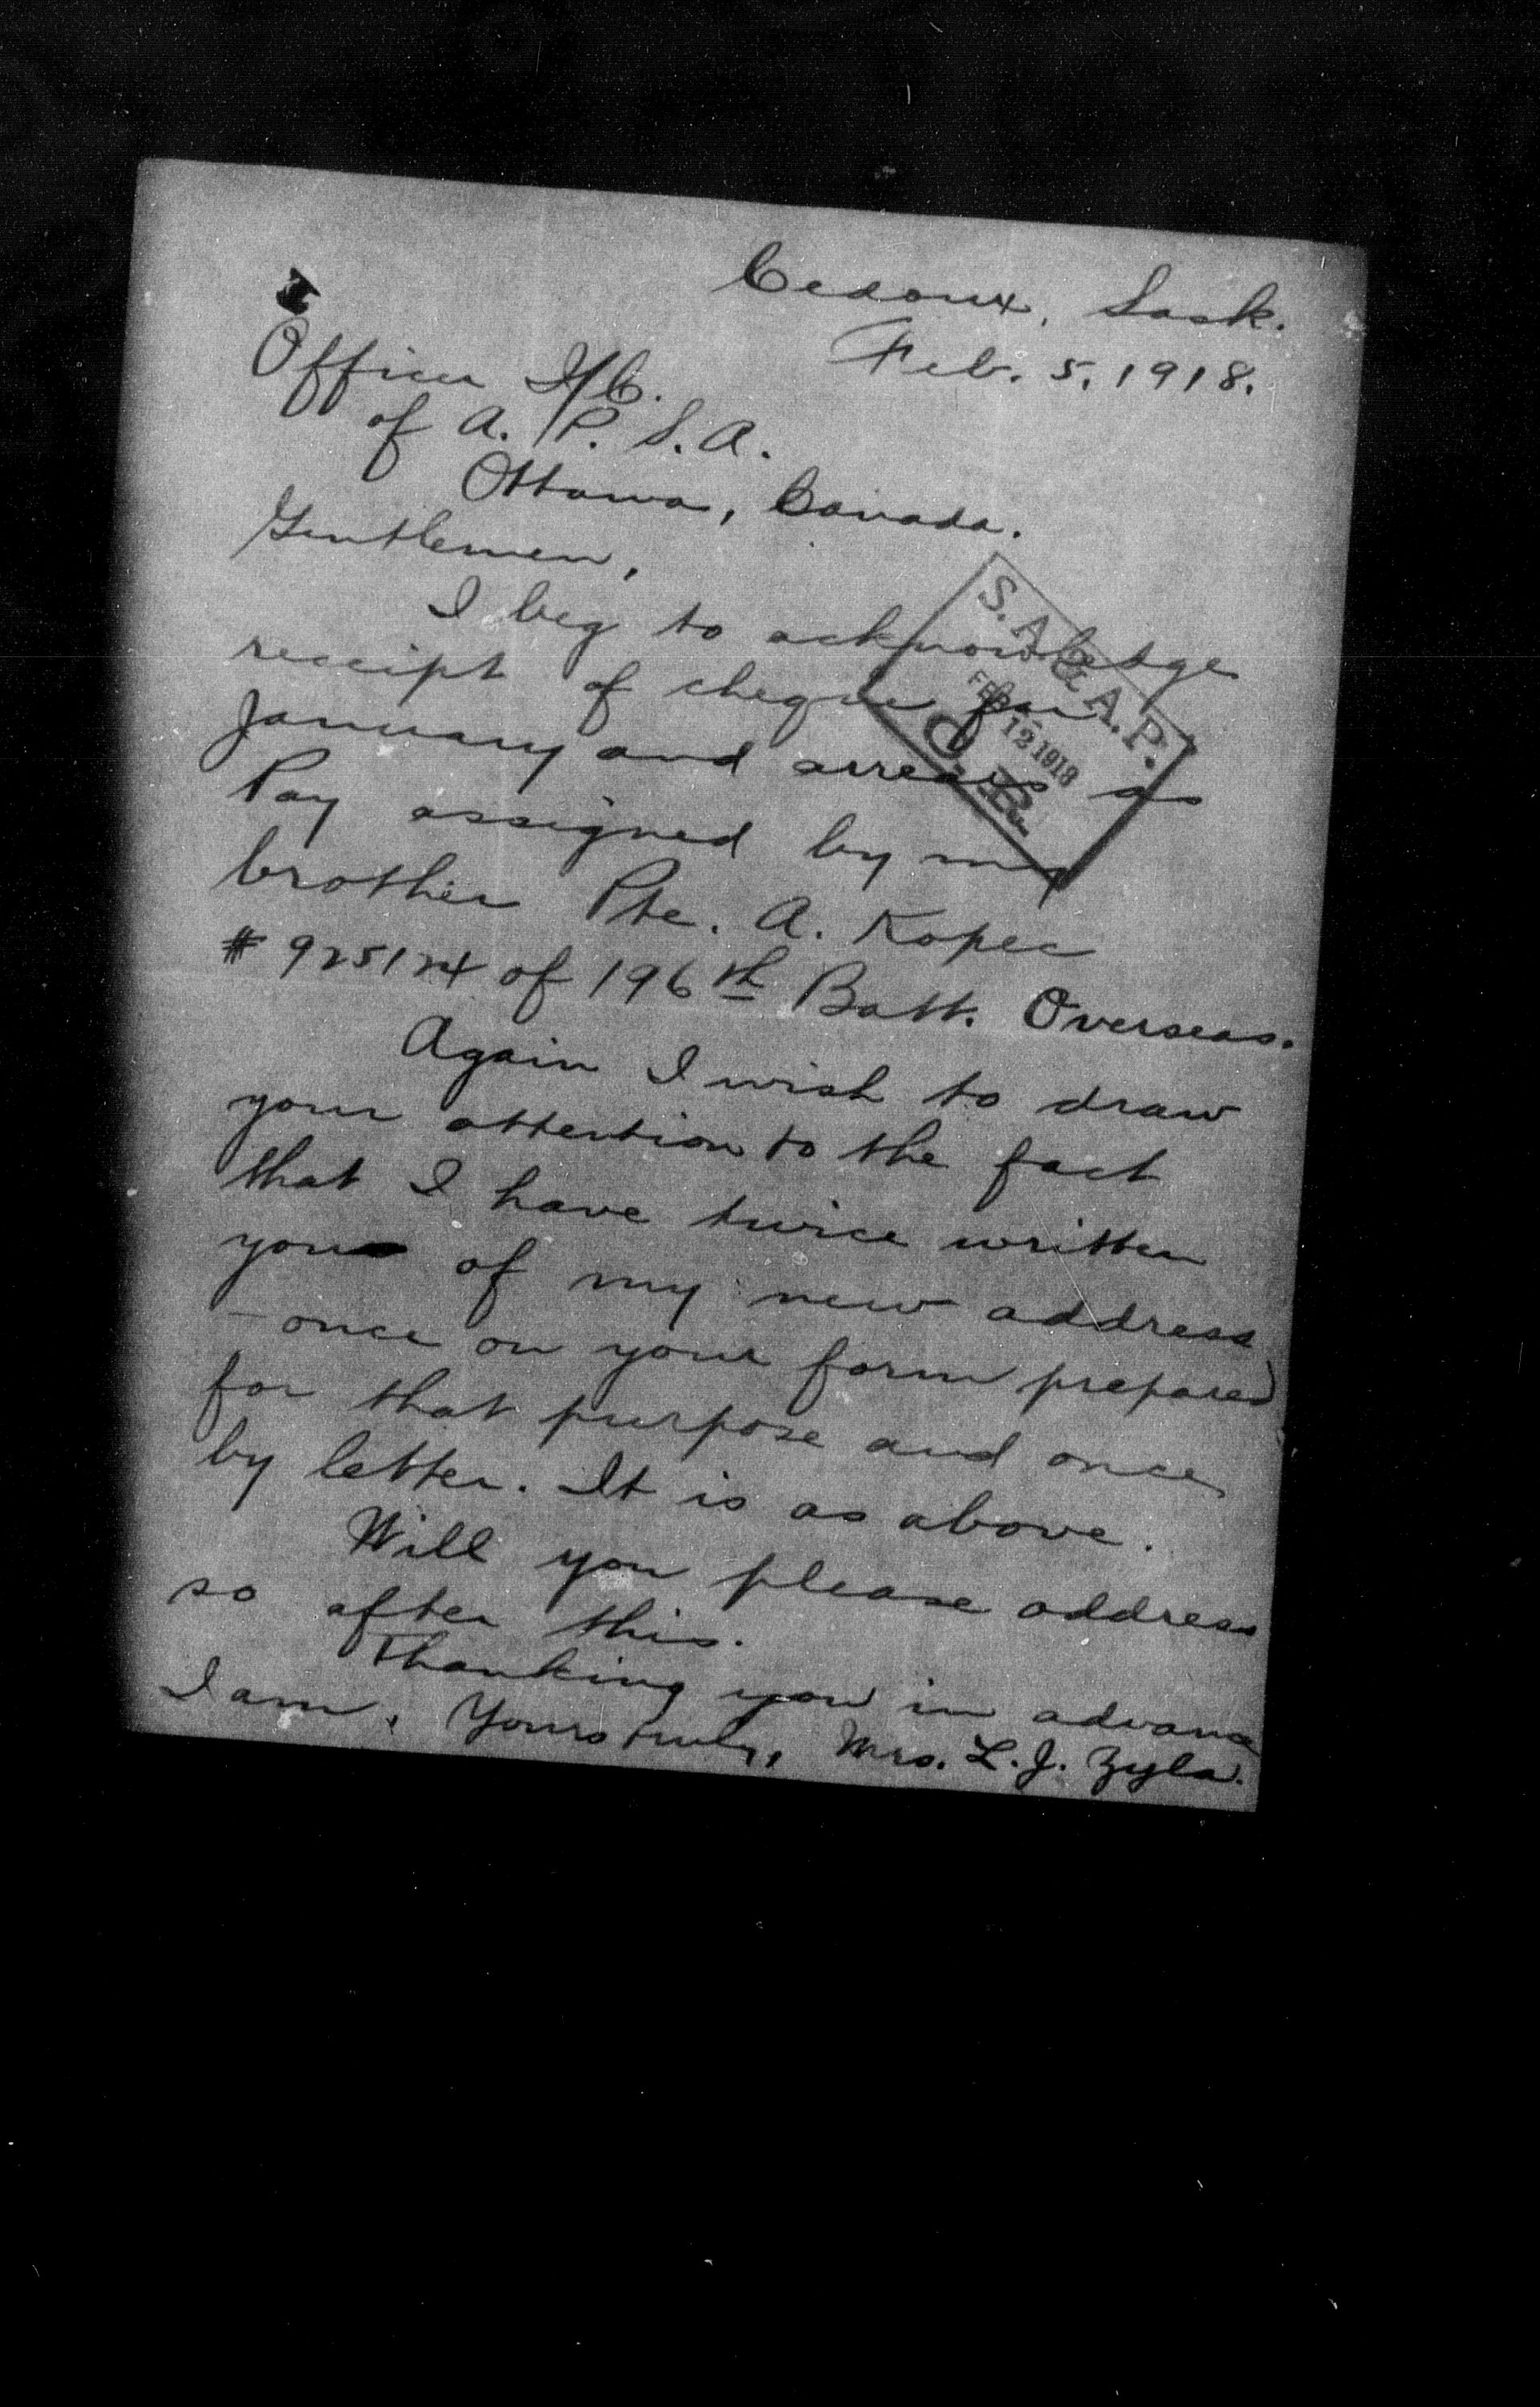 Cedoux, Sask.
Feb. 5, 1918.
Officer I/C.
of A. P. S. A.
Ottawa, Canada.
Gentlemen,
I beg to acknowledge
receipt of cheque for
January and arrears as
Pay assigned by my
brother Pte. A. Kopec
# 925124 of 196th Batt. Overseas.
Again I wish to draw
your attention to the fact
that I have twice written
you of my new address
- once on your form prepared
for that purpose and once
by letter. It is as above.
Will you please address
so after this.
Thanking you in advance
I am, Yours truly, Mrs. L. J. Zyla.
S. A. & A. P.
FEB 12 1918
C. R.